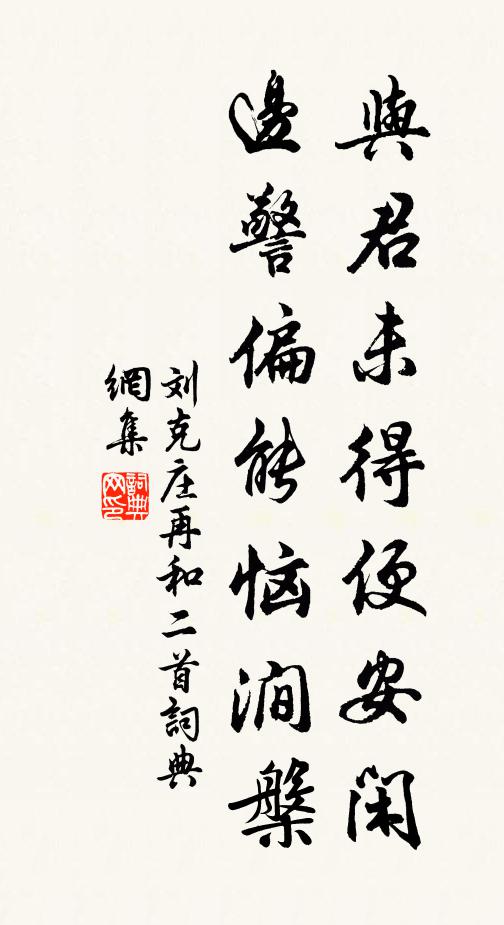 與君未得便安闲
邊警偏能恼澗槃
刘克庄再和二首詞典
網集
詞典
网印